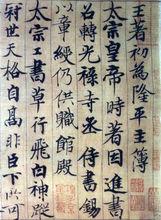 王著初為隆平主簿
太宗皇帝時著因進書
召轉光祿寺丞侍書錫
以章綬仍供職館殿
太宗工書草行飛白神蹤
冠世天格自高非臣下所